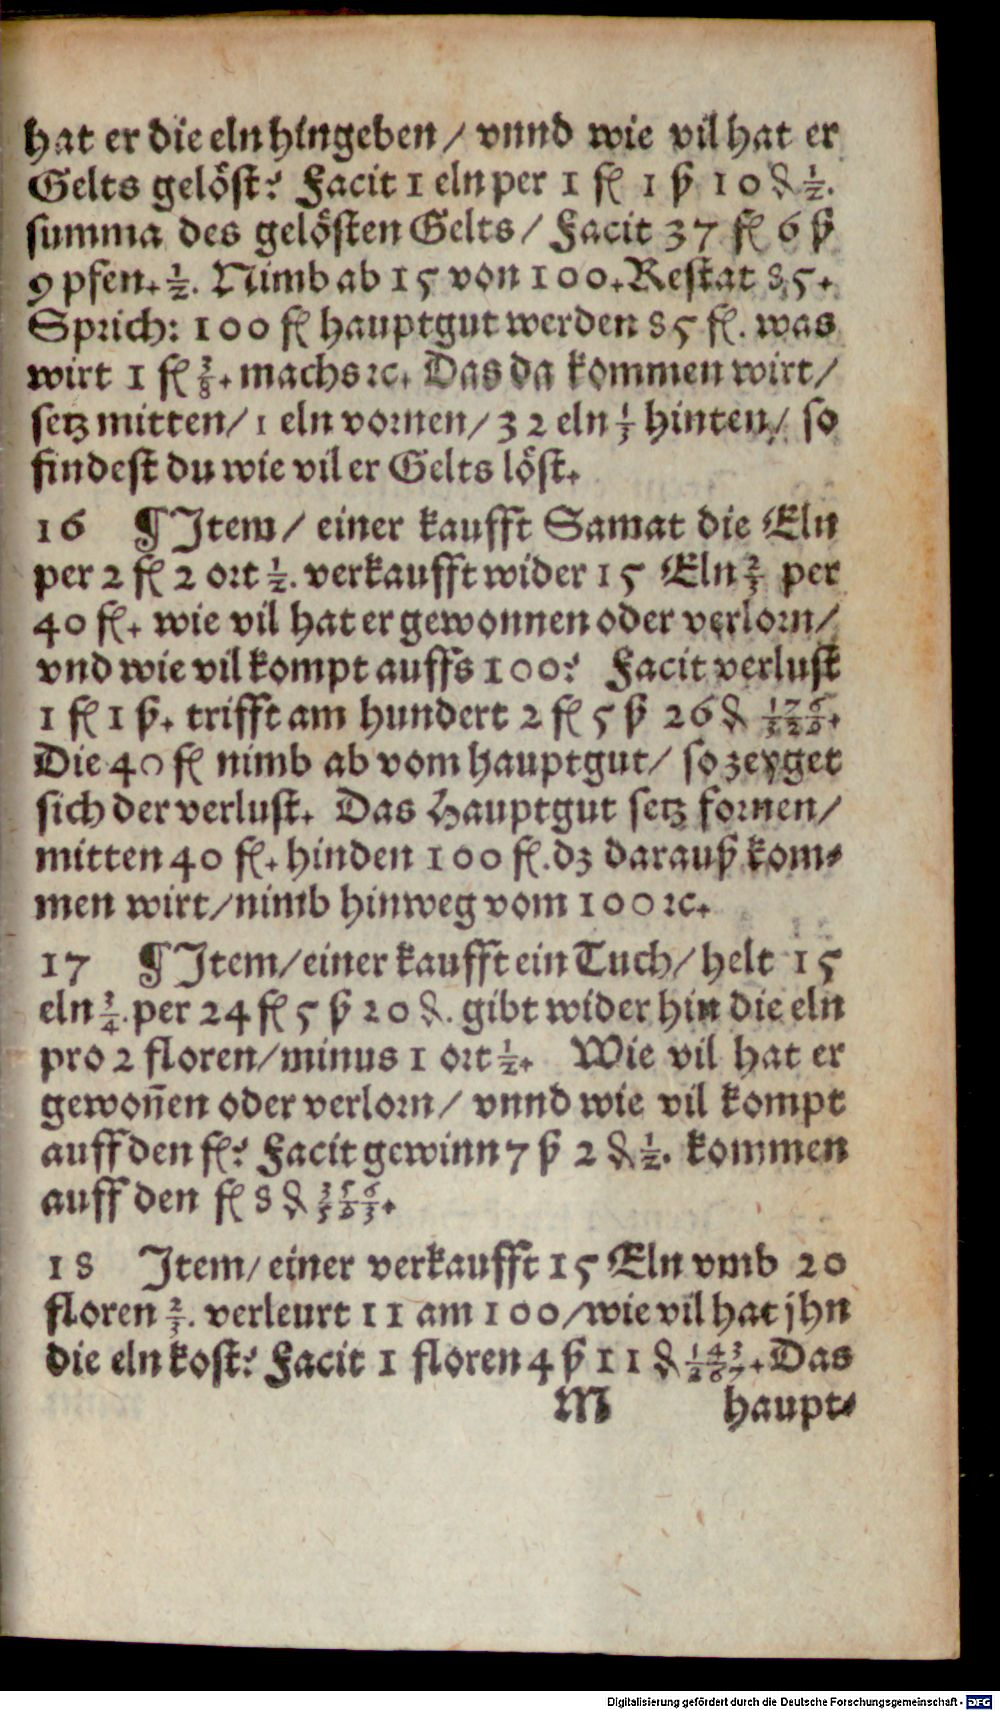 hat er die eln hingeben / vnnd wie vil hat er
Gelts gelöst? Facit 1 eln per 1 fl 1 ß 10 ₰ 1/2.
summa des gelösten Gelts / Facit 37 fl 6 ß
9 pfen. 1/2. Nimb ab 15 von 100. Restat 85.
Sprich: 100 fl hauptgut werden 85 fl. was
wirt 1 fl 3/8. machs ꝛc. Das da kommen wirt /
setz mitten / 1 eln vornen / 32 eln 1/3 hinten / so
findest du wie vil er Gelts löst.
16 ¶ Item / einer kaufft Samat die Eln
per 2 fl 2 ort 1/2. verkaufft wider 15 Eln 2/3 per
40 fl. wie vil hat er gewonnen oder verlorn /
vnd wie vil kompt auffs 100? Facit verlust
1 fl 1 ß. trifft am hundert 2 fl 5 ß 26 ₰ 126/329.
Die 40 fl nimb ab vom hauptgut / so zeyget
sich der verlust. Das Hauptgut setz fornen /
mitten 40 fl. hinden 100 fl. dz darauß kom⸗
men wirt / nimb hinweg vom 100 ꝛc.
17 ¶ Item / einer kaufft ein Tuch / helt 15
eln 3/4. per 24 fl 5 ß 20 ₰. gibt wider hin die eln
pro 2 floren / minus 1 ort 1/2. Wie vil hat er
gewoñen oder verlorn / vnnd wie vil kompt
auff den fl? Facit gewinn 7 ß 2 ₰ 1/2. kommen
auff den fl 8 ₰
18 Item / einer verkaufft 15 Eln vmb 20
floren 2/3. verleurt 11 am 100 / wie vil hat jhn
die eln kost? Facit 1 floren 4 ß 11 ₰ 143/267. Das
M haupt⸗
Digitalisierung gefördert durch die Deutsche Forschungsgemeinschaft - DFG